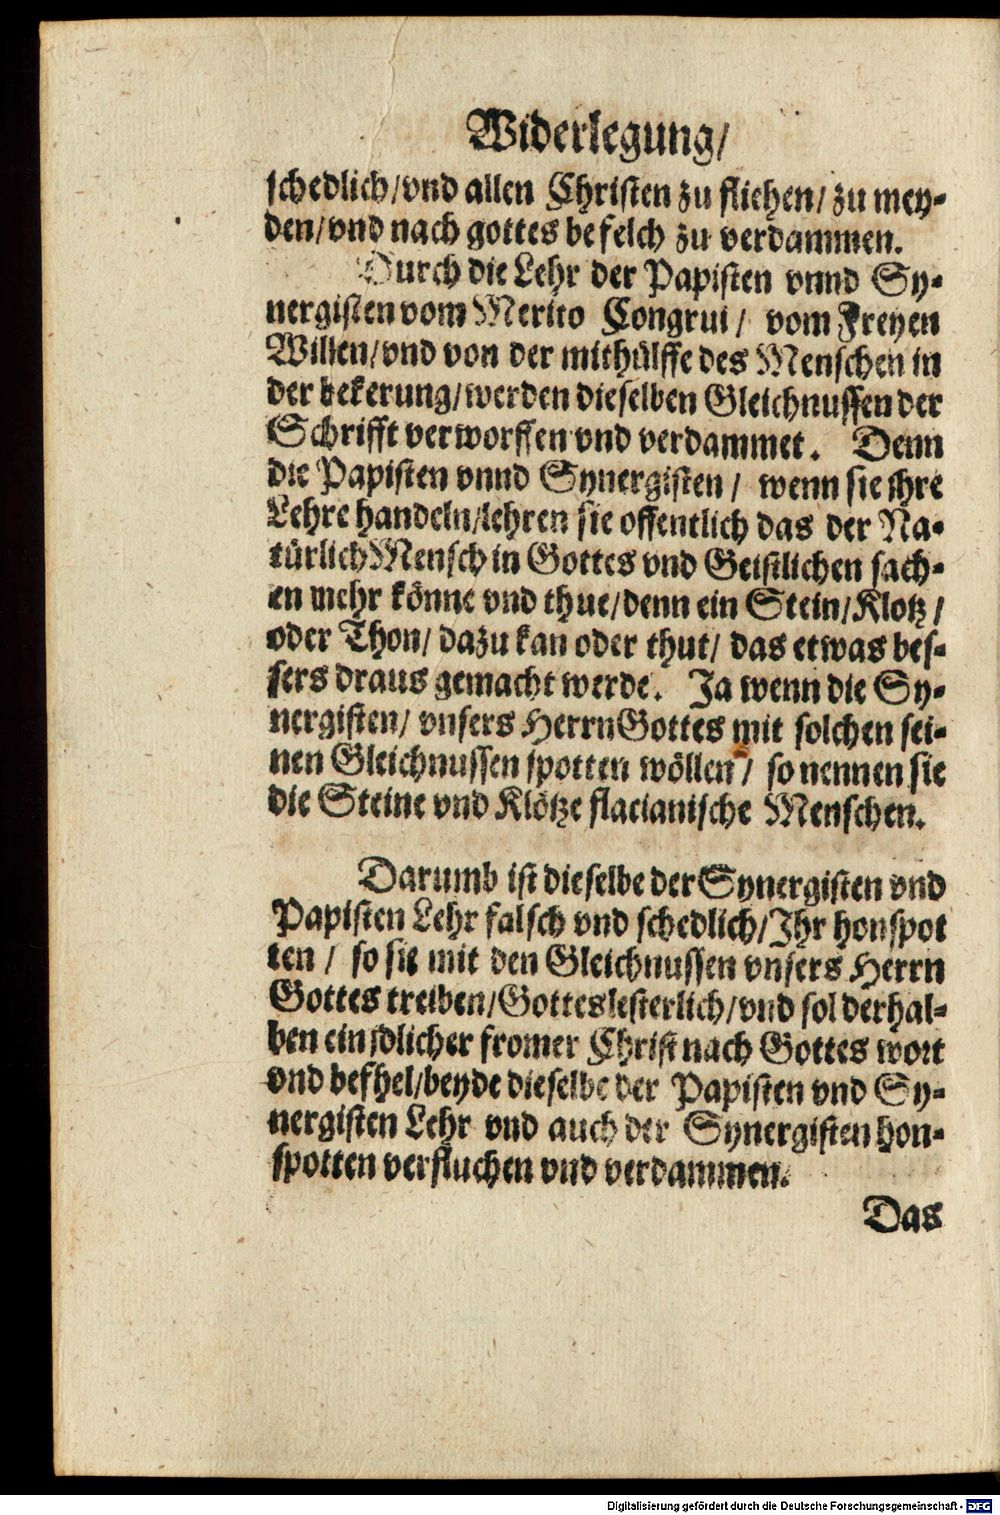 Widerlegung/
schedlich/vnd allen Christen zu fliehen/ zu mey-
den/vnd nach gottes befelch zu verdammen.
Durch die Lehr der Papisten vnnd Sy-
nergisten vom Merito Congrui/ vom Freyen
Willen/vnd von der mithülffe des Menschen in
der bekerung/werden dieselben Gleichnussen der
Schrifft verworffen vnd verdammet. Denn
die Papisten vnnd Synergisten/ wenn sie ihre
Lehre handeln/lehren sie offentlich das der Na-
türlich Mensch in Gottes vnd Geistlichen sach-
en mehr könne vnd thue/denn ein Stein/Klotz/
oder Thon/ dazu kan oder thut/ das etwas bes-
sers draus gemacht werde. Ja wenn die Sy-
nergisten/ vnsers Herrn Gottes mit solchen sei-
nen Gleichnussen spotten wöllen/ so nennen sie
die Steine vnd Klötze flacianische Menschen.
Darumb ist dieselbe der Synergisten vnd
Papisten Lehr falsch vnd schedlich/Ihr honspot
ten/ so sie mit den Gleichnussen vnsers Herrn
Gottes treiben/Gotteslesterlich/vnd sol derhal-
ben ein jdlicher fromer Christ nach Gottes wort
vnd befhel/beyde dieselbe der Papisten vnd Sy-
nergisten Lehr vnd auch der Synergisten hon-
spotten verfluchen vnd verdammen.
Das
Digitalisierung gefördert durch die Deutsche Forschungsgemeinschaft - DFG